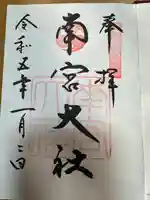 奉拝
南宮大社
令和五年一月二日